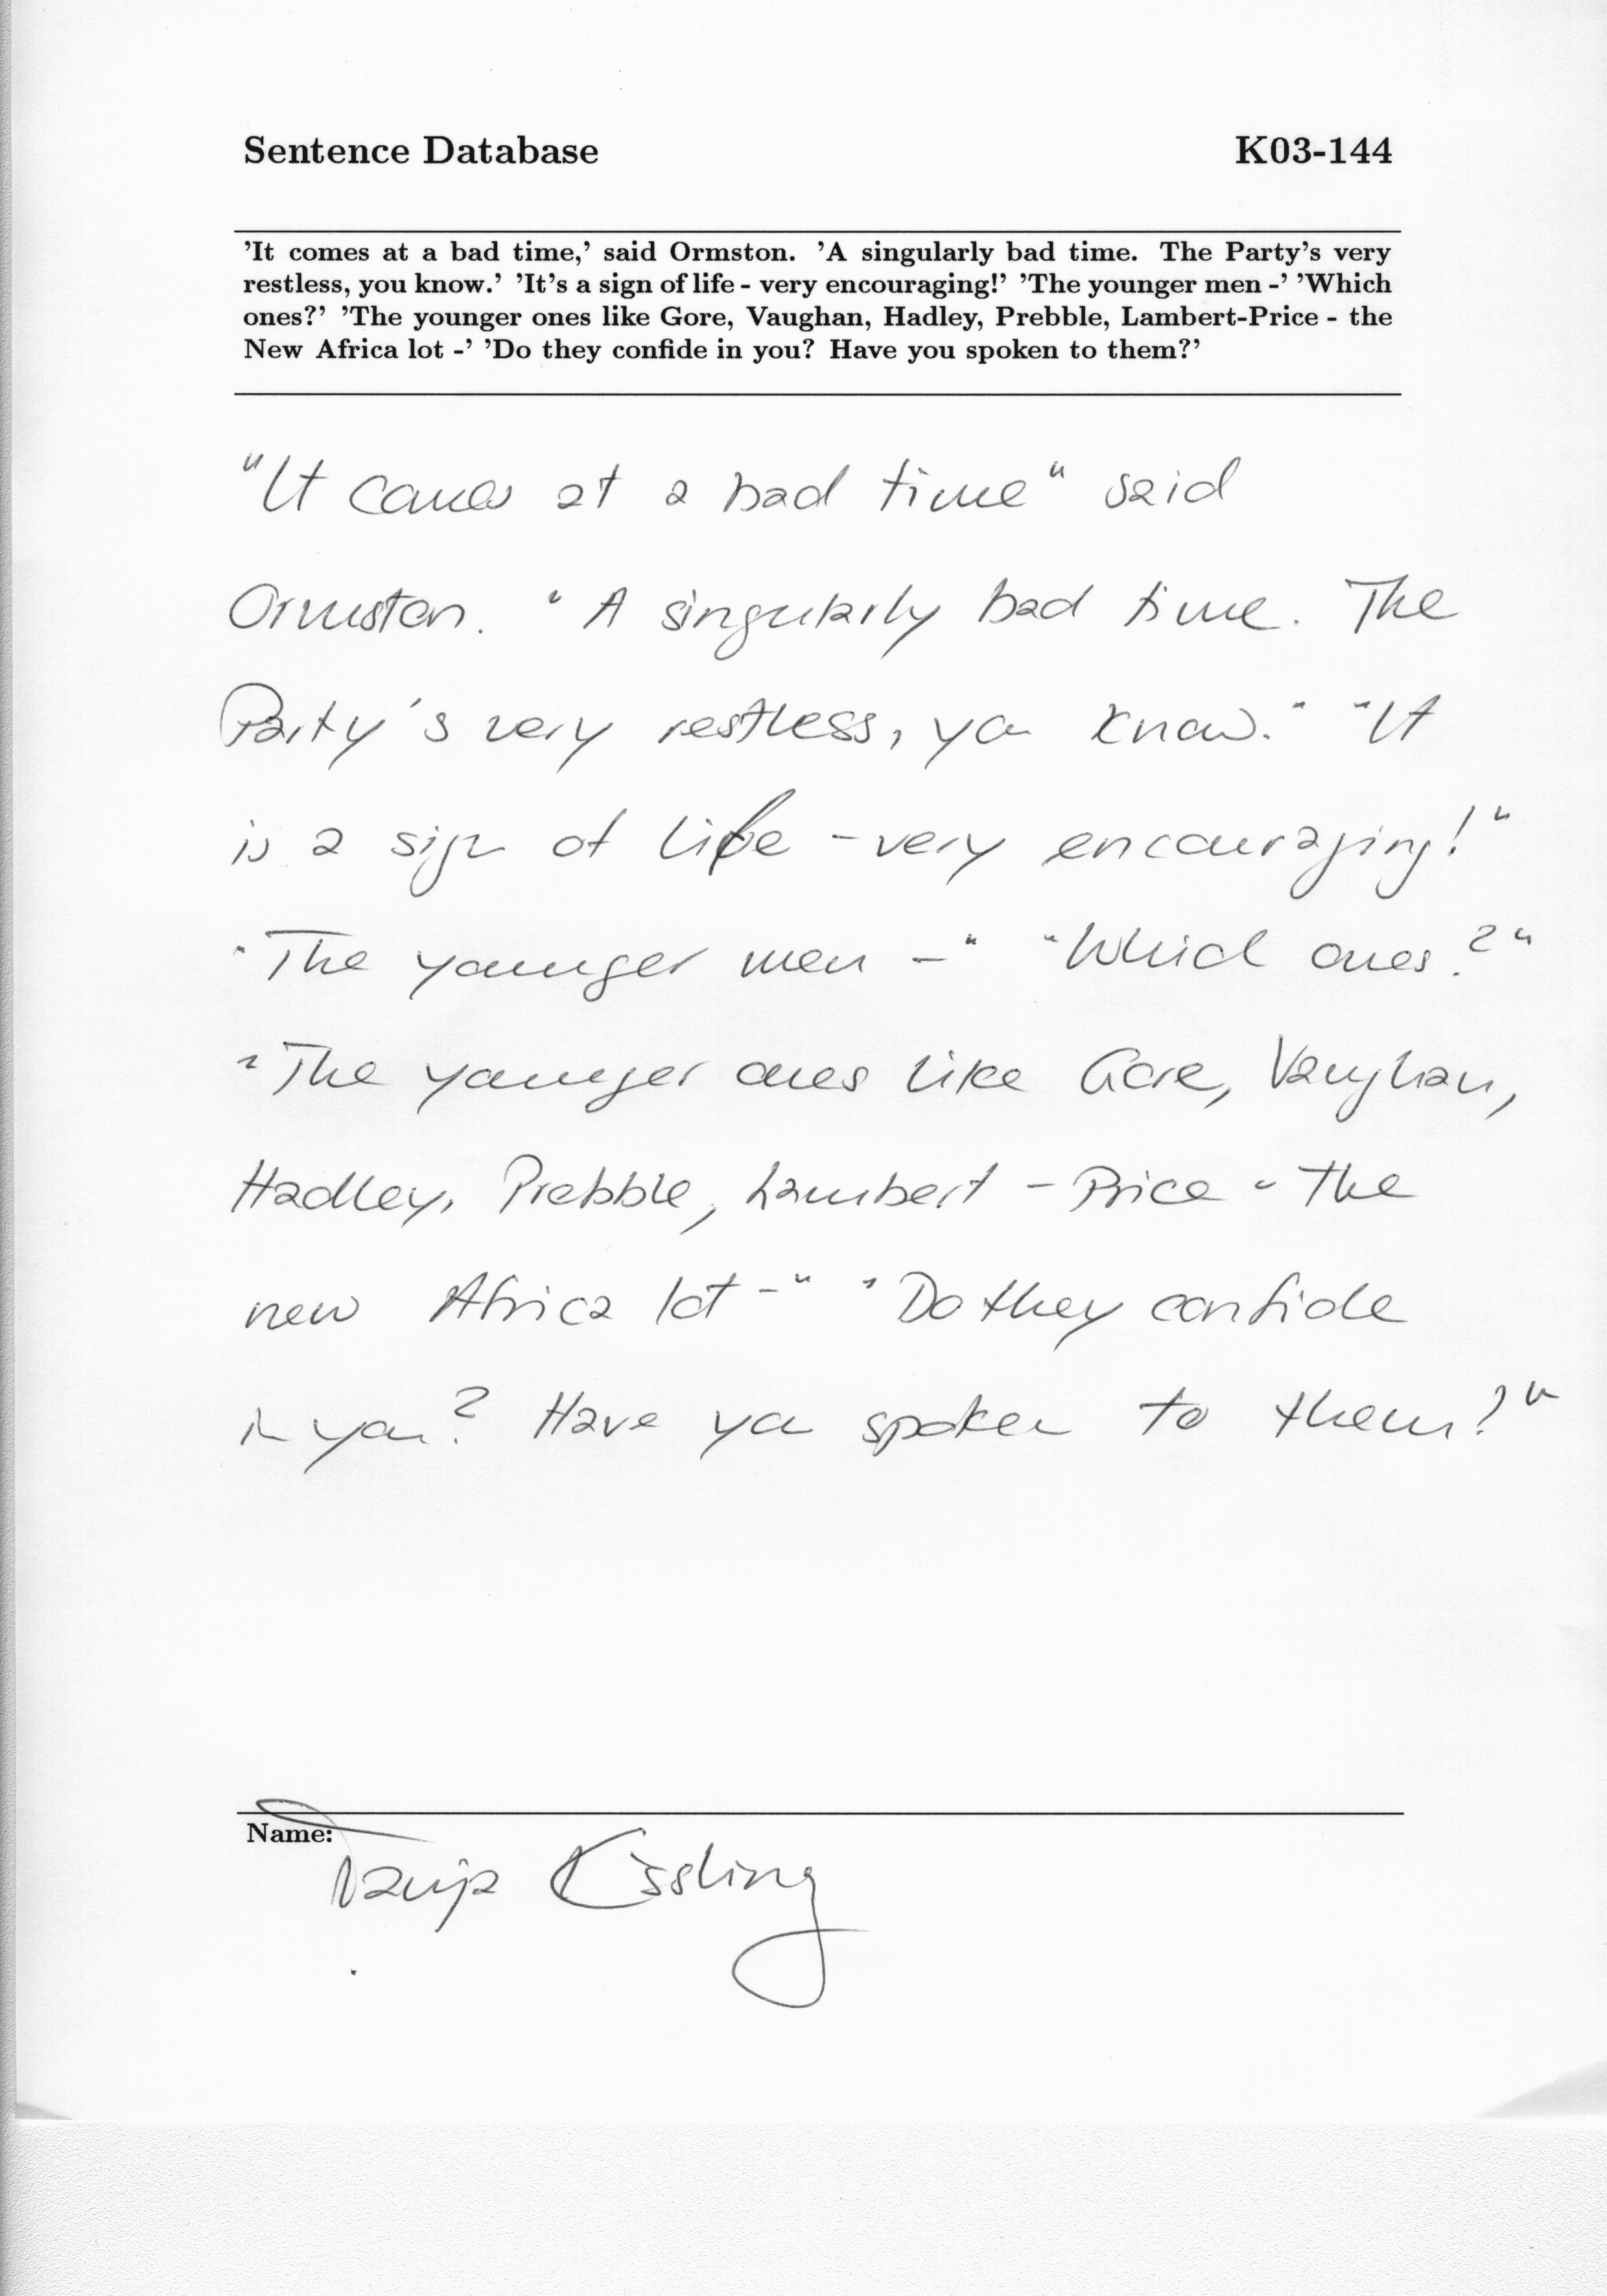 Sentence Database K03-144
’It comes at a bad time,’ said Ormston. ’A singularly bad time. The Party’s very
restless, you know.’ ’It’s a sign of life - very encouraging!’ ’The younger men -’ ’Which
ones?’ ’The younger ones like Gore, Vaughan, Hadley, Prebble, Lambert-Price - the
New Africa lot -’ ’Do they confide in you? Have you spoken to them?’
"It comes at a bad time" said
Ormston. "A singularly bad time. The
Party's very restless, you know." "It
is a sign of life - very encouraging!"
"The younger men -" "Which ones?"
"The younger ones like Gore, Vaughan,
Hadley, Prebble, Lambert - Price - The
new Africa lot -" "Do they confide
in you? Have you spoken to them?"
Name:
Tanja Kissling